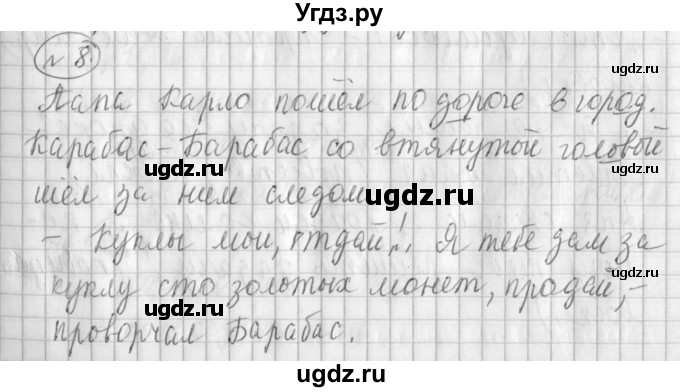 Угдз.ру
№ 8.
ugdz.ru
ugdz.ru
Папа Карло пошёл по дороге в город.
Карабас-Барабас со втянутой головой
ugdz.ru ugdz.ru
шёл за ним следом
ugdz.ru
- Куклы мои, отдай! Я тебе дам за
ugdz.ru ugdz.ru
куклу сто золотых монет, продай, -
ugdz.ru
проворчал Барабас.
ugdz.ru
ugdz.ru